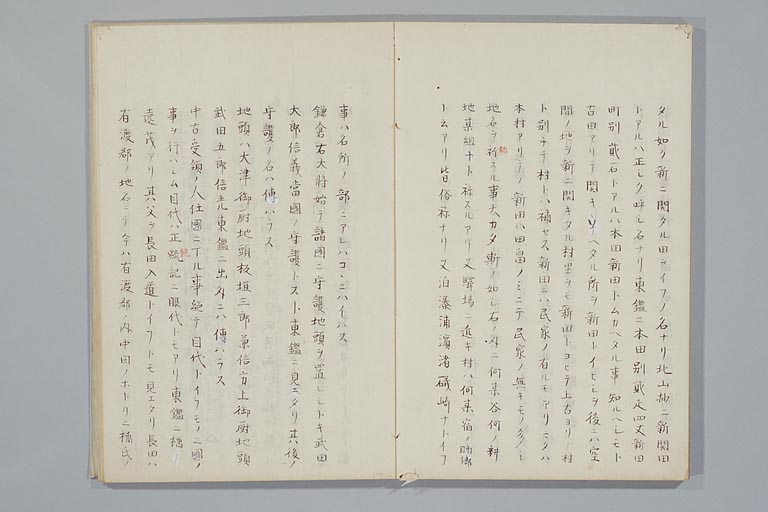 タル如ク新ニ開タル田ヲイフノ名ナリ北山抄ニ新開田
トアルハ正シク呼シ名ナリ東鑑ニ本田別貳疋四丈新田
町別貳石トアルハ本田新田トムカヘタル事知ルヘシモト
古田アリテ開キソヘタル所ヲ新田トイヒシヲ後ニハ空
間ノ地ヲ新ニ開キタル村里ヲモ新田トヨヒテ上古ヨリノ村
ト別チテ村トハ稱セス新田ニハ民家ノ有ルモアリマタハ
本村アリテノ新田ハ田畠ノミニテ民家ノ無キモノ多シ
地名ヲ称スル事大カタ斯ノ如シ右ノ外ニ何某谷何ノ科
称
地某組ナト称スルアリ又驛場ニ近キ村ハ何某宿ノ助郷
ト云アリ皆俗称ナリ又泊湊浦濱渚礒崎ナトイフ
事ハ名所ノ部ニアレハコヽニハイハス
鎌倉右大将始テ諸國ニ守護地頭ヲ置レシトキ武田
太郎信義當國ノ守護トスト東鑑ニ見エタリ其後ノ
守護ノ名ハ傳ハラス
地頭ハ大津御厨地頭板垣三郎兼信方上御厨地頭
武田五郎信光東鑑ニ出外ニハ傳ハラス
中古受領ノ人任國ニ下ル事絶テ目代トイフモノニ國ノ
事ヲ行ハシム目代ハ正統記ニ眼代トモアリ東鑑ニ橘
統
遠茂アリ其父ヲ長田入道トイフトモ見エタリ長田ハ
有渡郡ノ地名ニテ今ハ有渡郡ノ内中田ノホトリニ橘氏ノ